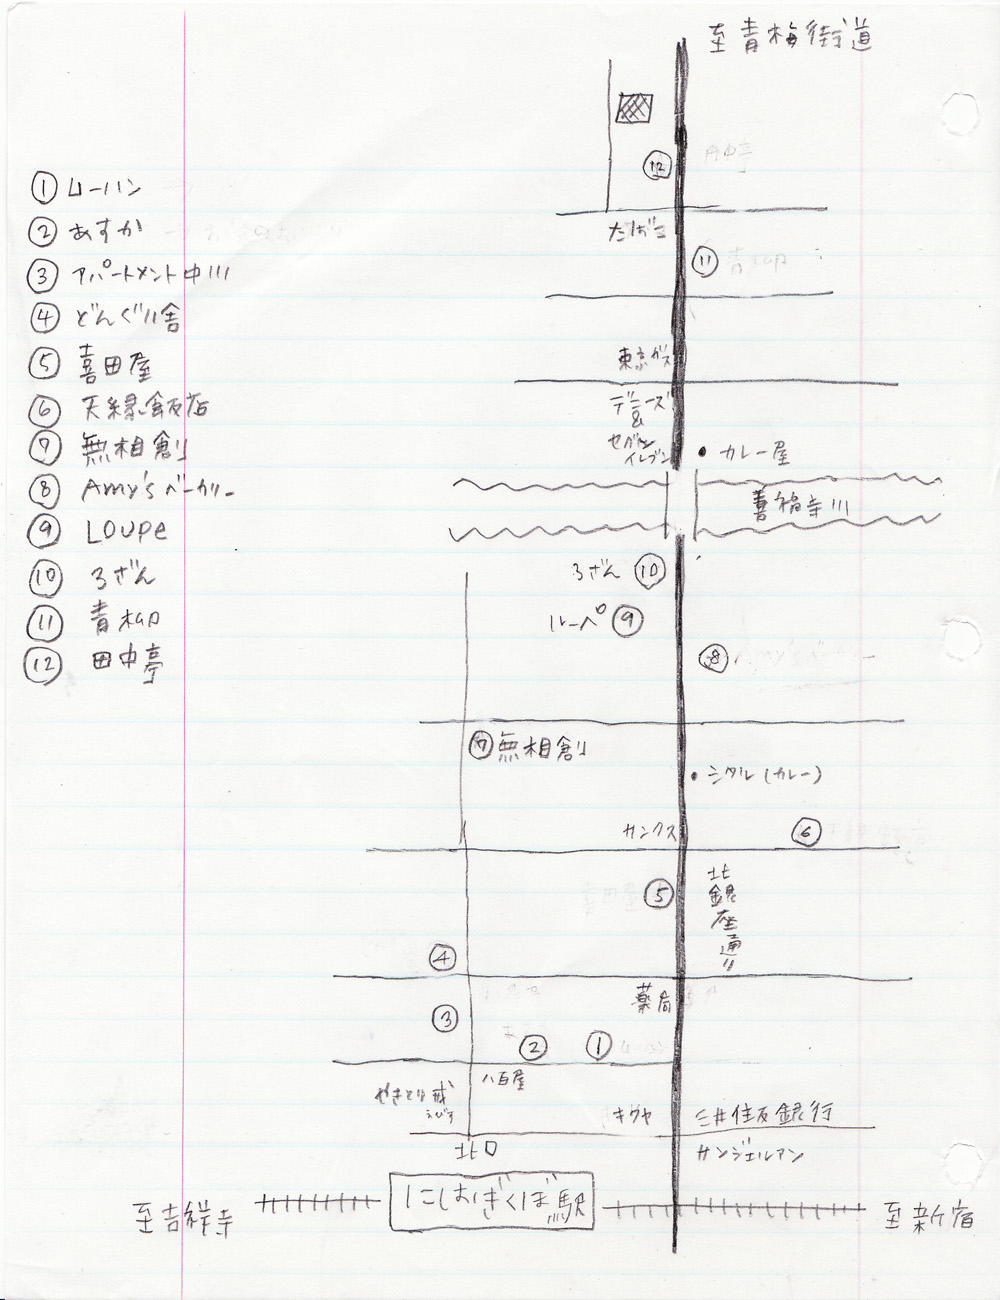 至青梅街道
⑫
たばこ
① ムーハン
② あすか
⑪
③ アパートメント中川
④ どんぐり舎
⑤ 喜田屋
東京ガス
⑥ 天緑飯店
デニーズ
&
セブン
イレブン
⑦ 無相創
・カレー屋
⑧ Amy'sベーカリー
善福寺川
⑨ LOUPE
⑩ ろざん
ろざん ⑩
⑪ 青柳
ルーペ ⑨
⑫ 田中亭
⑧
⑦ 無相創
・シタル(カレー)
サンクス
⑥
⑤
北銀座通り
④
薬局
③
② ①
八百屋
やきとり戎
えびす
キクヤ
三井住友銀行
北口
サンジェルマン
にしおぎくぼ駅
至吉祥寺
至新宿